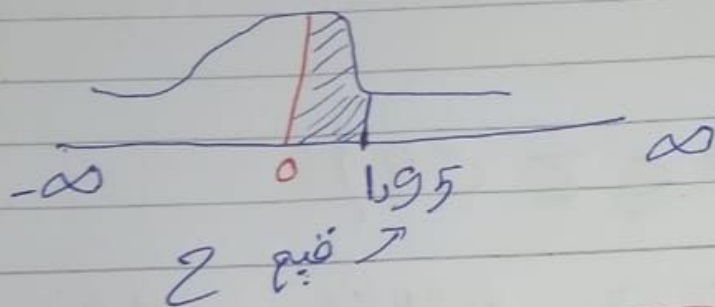 -∞ 0 1,95 ∞
قيم Z ↗